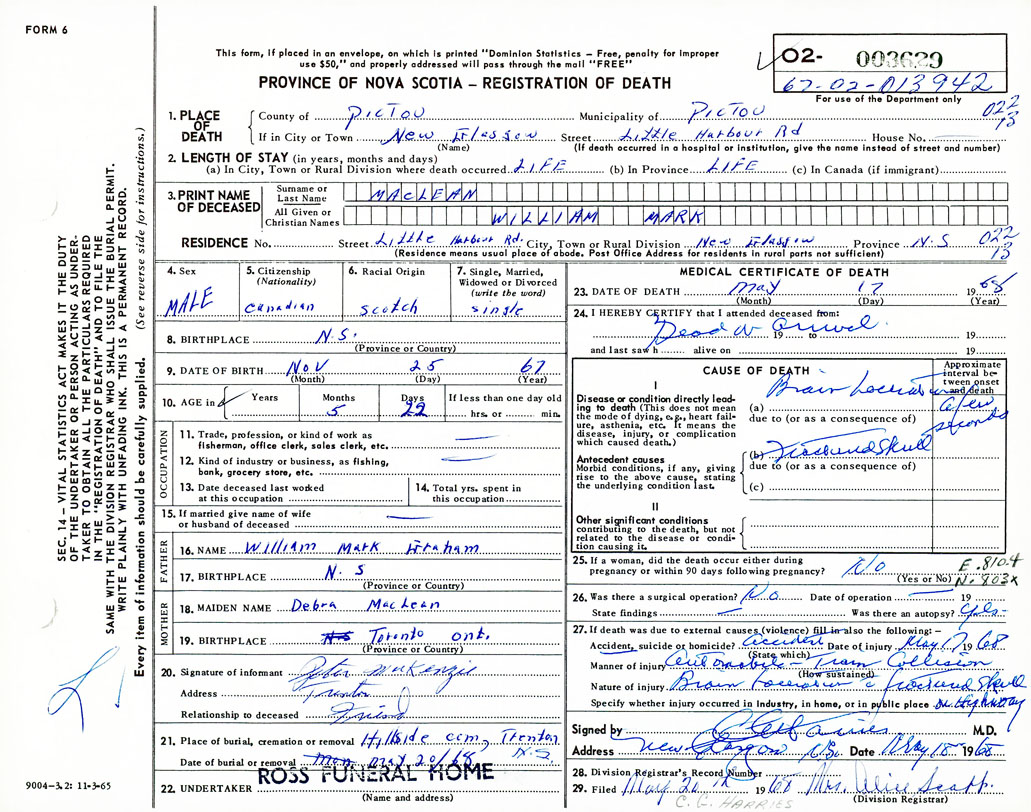 FORM 6
This form, if placed in an envelope, on which is printed "Dominion Statistics – Free, penalty for improper
use $50," and properly addressed will pass through the mail "FREE"
PROVINCE OF NOVA SCOTIA – REGISTRATION OF DEATH
O2- 003629
67-02-013942
For use of the Department only
022
13
1. PLACE OF DEATH
County of PICTOU Municipality of PICTOU
If in City or Town New Glasgow Street Little Harbour Rd House No.
(Name) (If death occurred in a hospital or institution, give the name instead of street and number)
2. LENGTH OF STAY (in years, months and days)
(a) In City, Town or Rural Division where death occurred LIFE (b) In Province LIFE (c) In Canada (if immigrant)
3. PRINT NAME OF DECEASED
Surname or Last Name MACLEAN
All Given or Christian Names WILLIAM MARK
RESIDENCE No. Street Little Harbour Rd. City, Town or Rural Division New Glasgow Province N.S. 022
13
(Residence means usual place of abode. Post Office Address for residents in rural parts not sufficient)
4. Sex
MALE
5. Citizenship
(Nationality)
Canadian
6. Racial Origin
Scotch
7. Single, Married,
Widowed or Divorced
(write the word)
Single
8. BIRTHPLACE N.S.
(Province or Country)
9. DATE OF BIRTH Nov 25 67
(Month) (Day) (Year)
10. AGE in Years Months Days If less than one day old
5 22 hrs. or min.
OCCUPATION
11. Trade, profession, or kind of work as
fisherman, office clerk, sales clerk, etc.
12. Kind of industry or business, as fishing,
bank, grocery store, etc.
13. Date deceased last worked
at this occupation
14. Total yrs. spent in
this occupation
15. If married give name of wife
or husband of deceased
FATHER
16. NAME William Mark Graham
17. BIRTHPLACE N.S
(Province or Country)
MOTHER
18. MAIDEN NAME Debra MacLean
19. BIRTHPLACE N.S Toronto Ont.
(Province or Country)
20. Signature of informant Peter McKenzie
Address Trenton
Relationship to deceased Friend
21. Place of burial, cremation or removal Hillside cem, Trenton
N.S.
Date of burial or removal Mon May 20/68
ROSS FUNERAL HOME
22. UNDERTAKER
(Name and address)
MEDICAL CERTIFICATE OF DEATH
23. DATE OF DEATH May 17 1968
(Month) (Day) (Year)
24. I HEREBY CERTIFY that I attended deceased from:
Dead on Arrival
19 to 19
and last saw h alive on 19
CAUSE OF DEATH
Approximate
interval be-
tween onset
and death
I
Disease or condition directly lead-
ing to death (This does not
mean the mode of dying, e.g., heart fail-
ure, asthenia, etc. It means the
disease, injury, or complication
which caused death.)
(a) Brain Laceration a few
seconds
due to (or as a consequence of)
Antecedent causes
Morbid conditions, if any, giving
rise to the above cause, stating
the underlying condition last.
(b) Fractured Skull
due to (or as a consequence of)
(c)
II
Other significant conditions
contributing to the death, but not
related to the disease or condi-
tion causing it.
25. If a woman, did the death occur either during
pregnancy or within 90 days following pregnancy? No
(Yes or No)
E.810.4
N.803x
26. Was there a surgical operation? No Date of operation 19
State findings Was there an autopsy? Yes
27. If death was due to external causes (violence) fill in also the following:–
Accident, suicide or homicide? Accident Date of injury May 17 1968
(State which)
Manner of injury Automobile – Train Collision
(How sustained)
Nature of injury Brain Laceration c fractured skull
Specify whether injury occurred in industry, in home, or in public place on Highway
Signed by M.D.
Address New Glasgow N.S. Date May 18 1968
28. Division Registrar's Record Number
29. Filed May 20th 1968 Mrs. Alice Scott.
(Division Registrar)
C. G. HARRIES
SEC. 14 – VITAL STATISTICS ACT MAKES IT THE DUTY
OF THE UNDERTAKER OR PERSON ACTING AS UNDER-
TAKER TO OBTAIN ALL THE PARTICULARS REQUIRED
IN THE "REGISTRATION OF DEATH" AND TO FILE THE
SAME WITH THE DIVISION REGISTRAR WHO SHALL ISSUE THE BURIAL PERMIT.
WRITE PLAINLY WITH UNFADING INK. THIS IS A PERMANENT RECORD.
Every item of information should be carefully supplied. (See reverse side for instructions.)
9004-3.2: 11-3-65